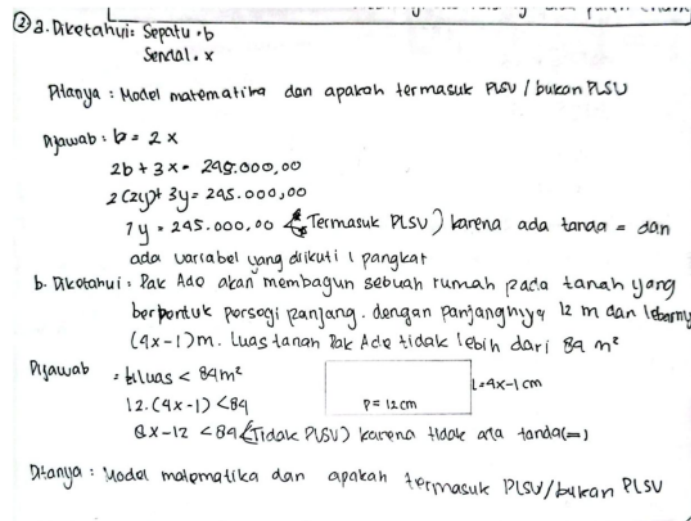 ② a. Diketahui: Sepatu = b
Sendal = x
Ditanya : Model matematika dan apakah termasuk PLSV / bukan PLSV
Dijawab : b = 2 x
2b + 3x = 245.000,00
2(2y) + 3y = 245.000,00
7y = 245.000,00 (Termasuk PLSV) karena ada tanda = dan
ada variabel yang diikuti 1 pangkat
b. Diketahui : Pak Ado akan membagun sebuah rumah pada tanah yang
berbentuk persegi panjang. dengan panjangnya 12 m dan lebarny
(4x-1)m. Luas tanah Pak Ade tidak lebih dari 84 m²
Dijawab = luas < 84m²
L=4x-1 cm
12.(4x-1) <84
P= 12cm
8x-12 <84 (Tidak PLSV) karena tidak ada tanda(=)
Ditanya : Model matematika dan apakah termasuk PLSV/bukan PLSV